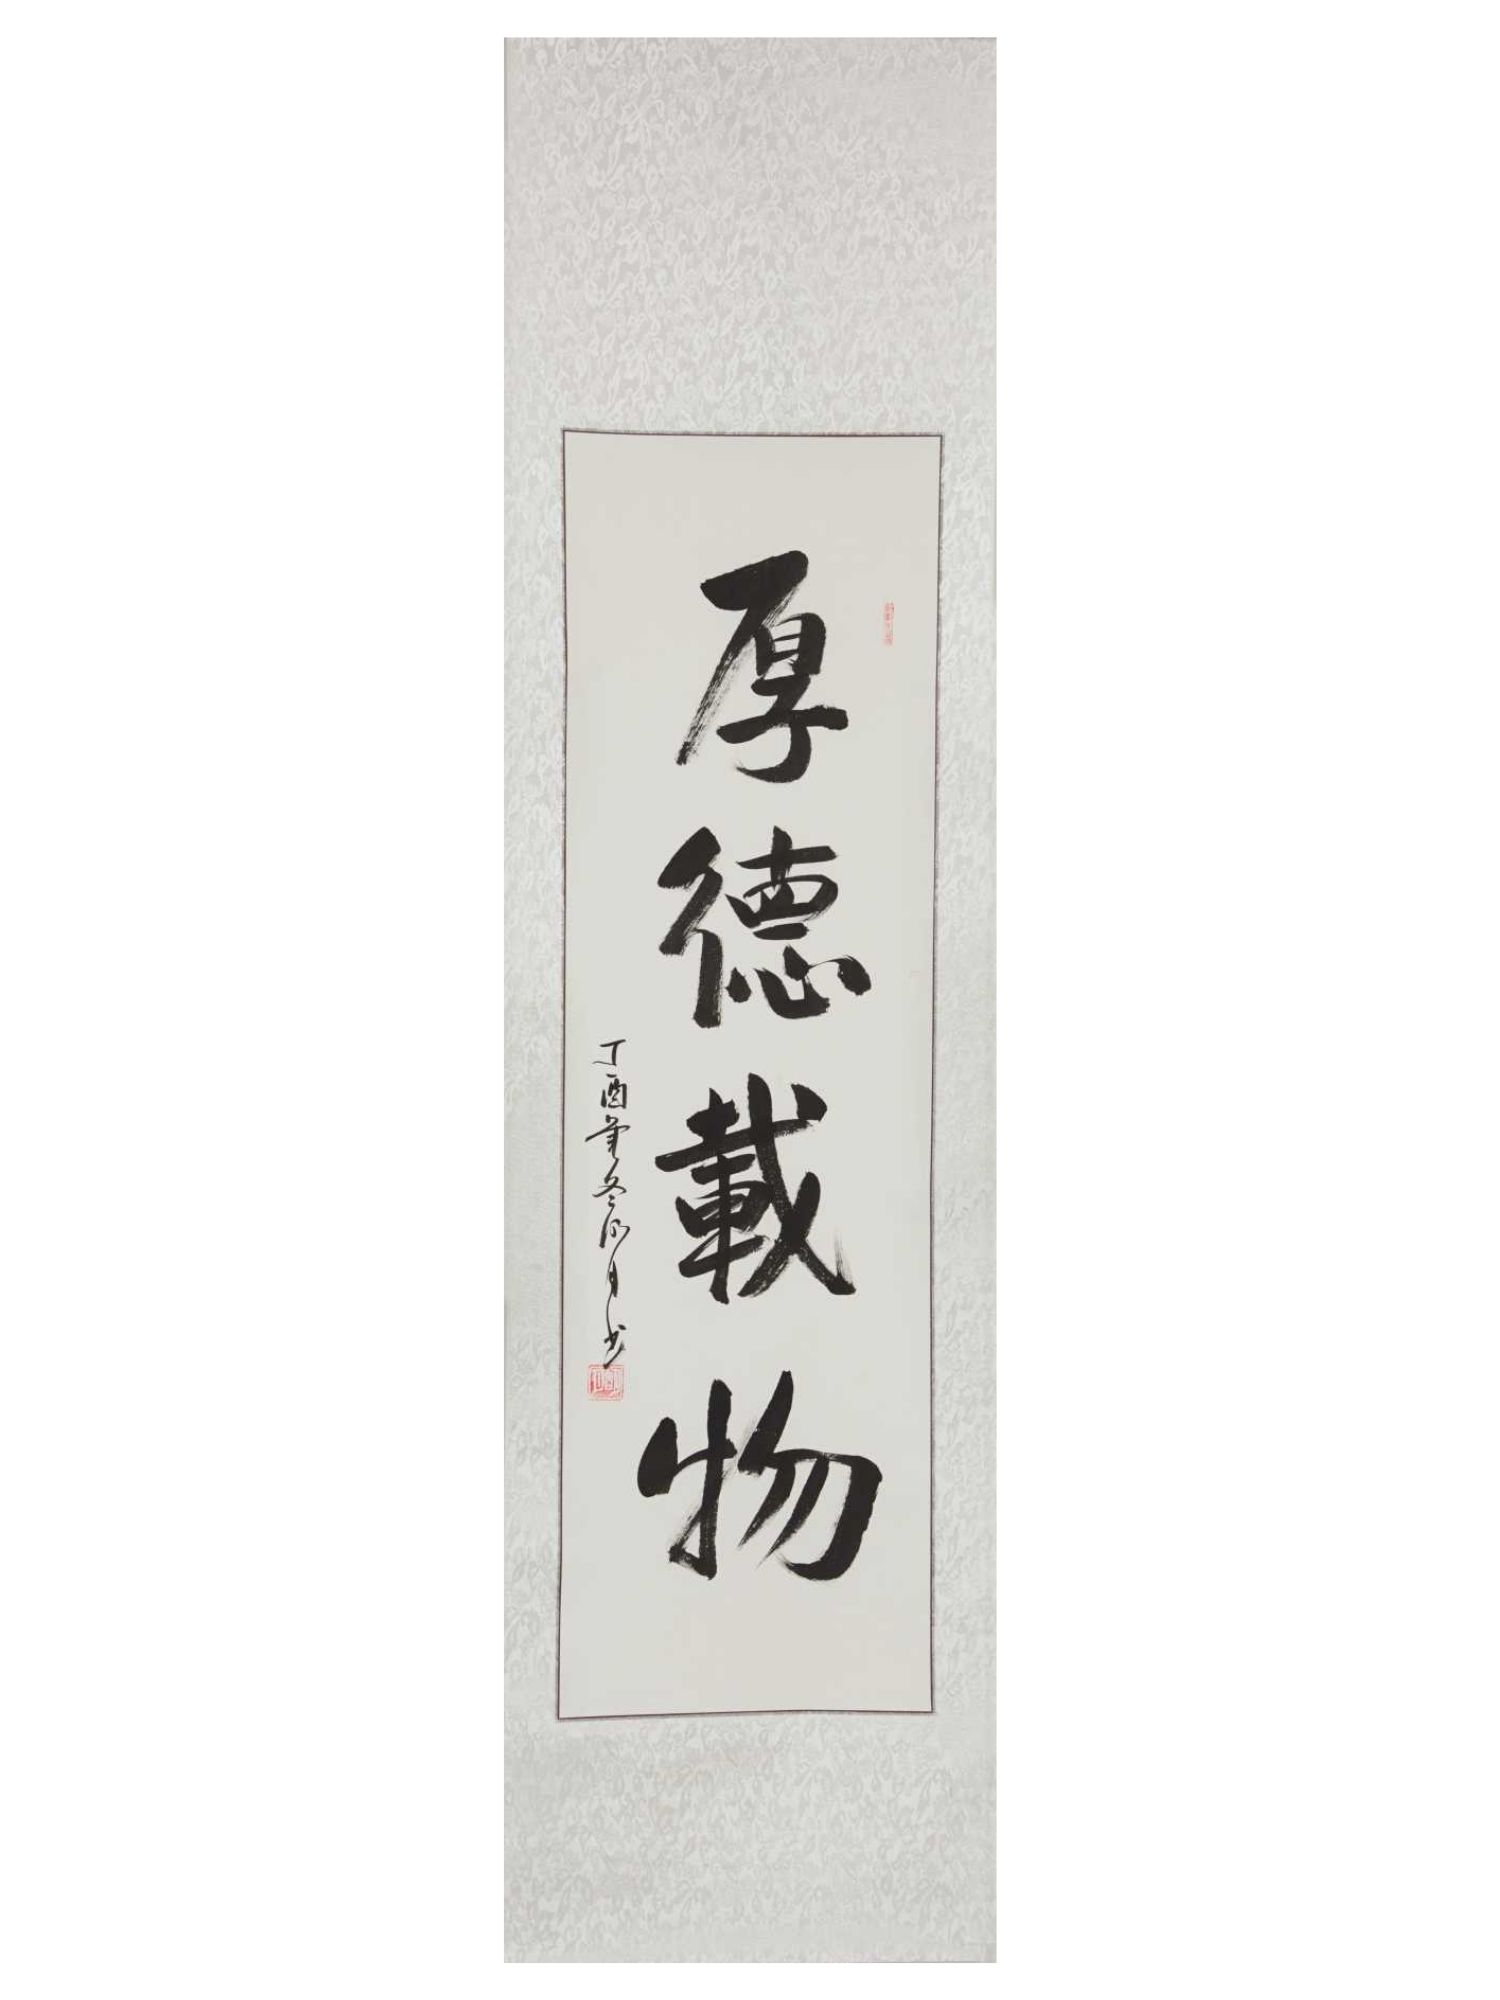 厚德載物
丁酉年冬明月书